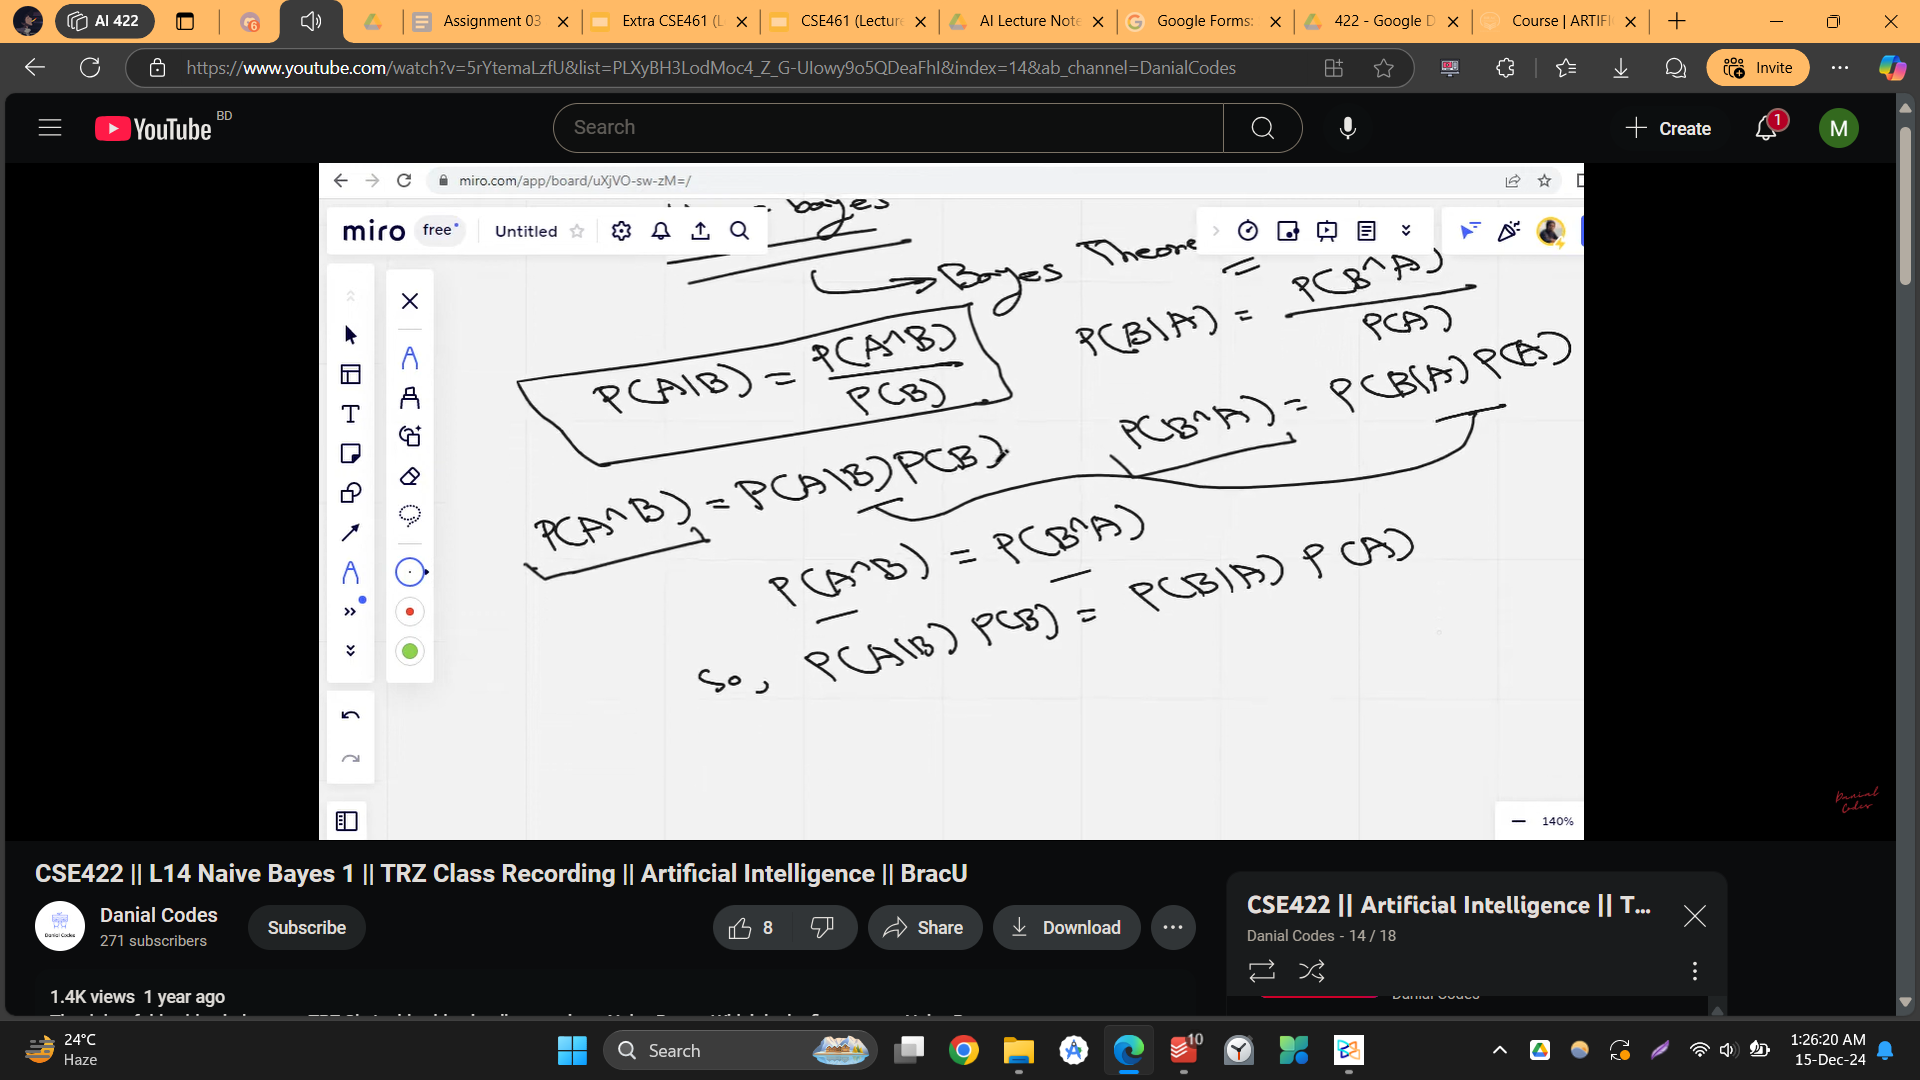 AI 422
6
Assignment 03
Extra CSE461 (L
CSE461 (Lecture
AI Lecture Note
Google Forms:
422 - Google D
Course | ARTIFI
https://www.youtube.com/watch?v=5rYtemaLzfU&list=PLXyBH3LodMoc4_Z_G-UIowy9o5QDeaFhI&index=14&ab_channel=DanialCodes
Invite
YouTube BD
Search
Create
1
M
miro.com/app/board/uXjVO-sw-zM=/
miro free Untitled
bayes
Bayes Theore
P(A|B) = P(A^B) / P(B)
P(B|A) = P(B^A) / P(A)
P(B^A) = P(B|A) P(A)
P(A^B) = P(A|B) P(B)
P(A^B) = P(B^A)
So, P(A|B) P(B) = P(B|A) P(A)
140%
Danial
Codes
CSE422 || L14 Naive Bayes 1 || TRZ Class Recording || Artificial Intelligence || BracU
Danial Codes
271 subscribers
Subscribe
8
Share
Download
1.4K views 1 year ago
CSE422 || Artificial Intelligence || T...
Danial Codes - 14 / 18
Danial Codes
24°C
Haze
Search
10
1:26:20 AM
15-Dec-24